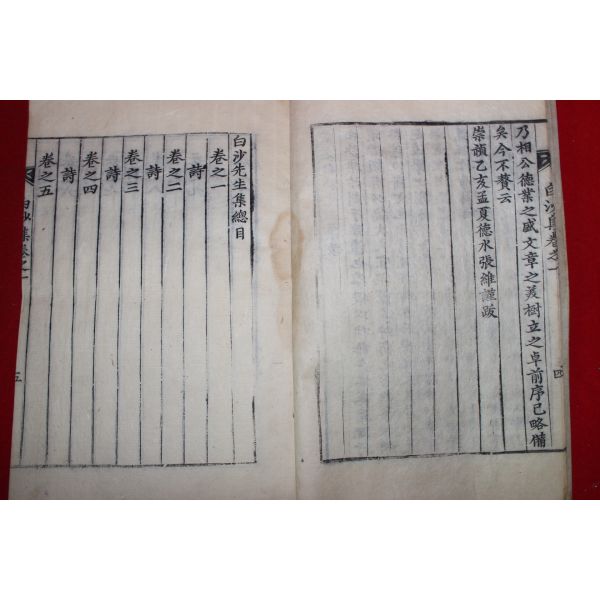 白沙集卷之一
四
乃相公德業之盛文章之美樹立之卓前序已略備
矣今不贅云
崇禎乙亥孟夏德水張維謹跋
白沙先生集總目
卷之一
詩
卷之二
詩
卷之三
詩
卷之四
詩
卷之五
白沙集卷之一
五